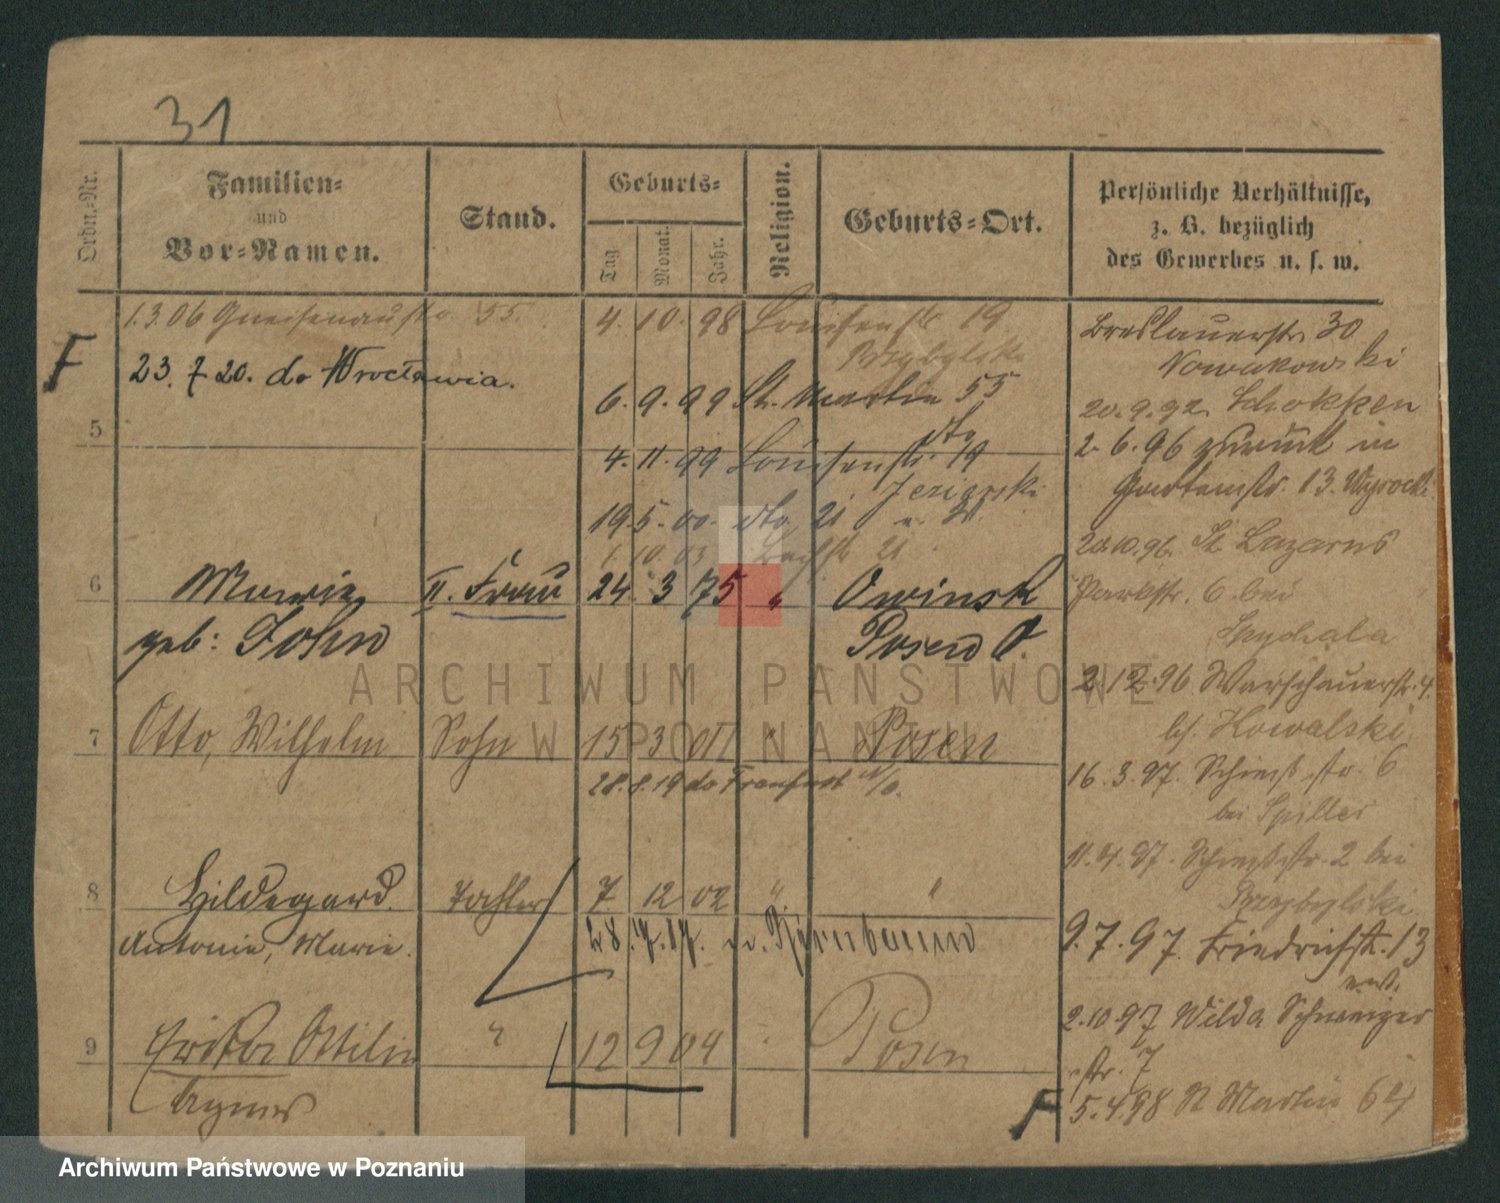 31
Ordn.-Nr.
Familien-
und
Vor-Namen.
Stand.
Geburts-
Tag.
Monat.
Jahr.
Religion.
Geburts-Ort.
Persönliche Verhältnisse,
z. B. bezüglich
des Gewerbes u. s. w.
1.3.06 Gneisenaustr. 55.
4. 10. 98 Louisenstr 19
Przybylski
F
23. 7 20. do Wrocławia.
6. 9. 99 St. Martin 55
5
dto
4. 11. 99 Louisenstr. 19
19 5. 00. dto 21
1. 10. 03 21
6 Marie II. Frau 24 3 75 " Owinsk
geb: John Posen O.
7 Otto, Wilhelm Sohn 15 3 01 " Posen
28. 8. 19 do
8 Hildegard Tochter 7 12 02 " "
Antonie, Marie.
9 Erika Ottilie " 12 9 04 Posen
Agnes
Breslauerstr. 30
Nowakowski
20. 9. 92 Schokken
2. 6. 96 zurück in
Gartenstr. 13.
20.10.96. St Lazarus
Parkstr. 6 bei
2. 12. 96 Warschauerstr. 4.
bf. Kowalski
16. 3. 97. str. 6
bei Spiller
11. 4. 97. 2 bei
Przybylski
9. 7. 97. Friedrichstr. 13
2. 10. 97 Wilda Schweizer
str. 7
F
5. 4. 98 St Martin 64
ARCHIWUM PAŃSTWOWE
W POZNANIU
Archiwum Państwowe w Poznaniu